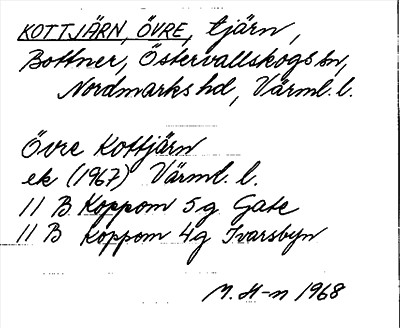 KOTTJÄRN, ÖVRE, tjärn,
Bottner, Östervallskogs sn,
Nordmarks hd, Värml. l.
Övre Kottjärn
ek (1967) Värml. l.
11 B Koppom 5g Gate
11 B Koppom 4g Ivarsbyn
M. H-n 1968